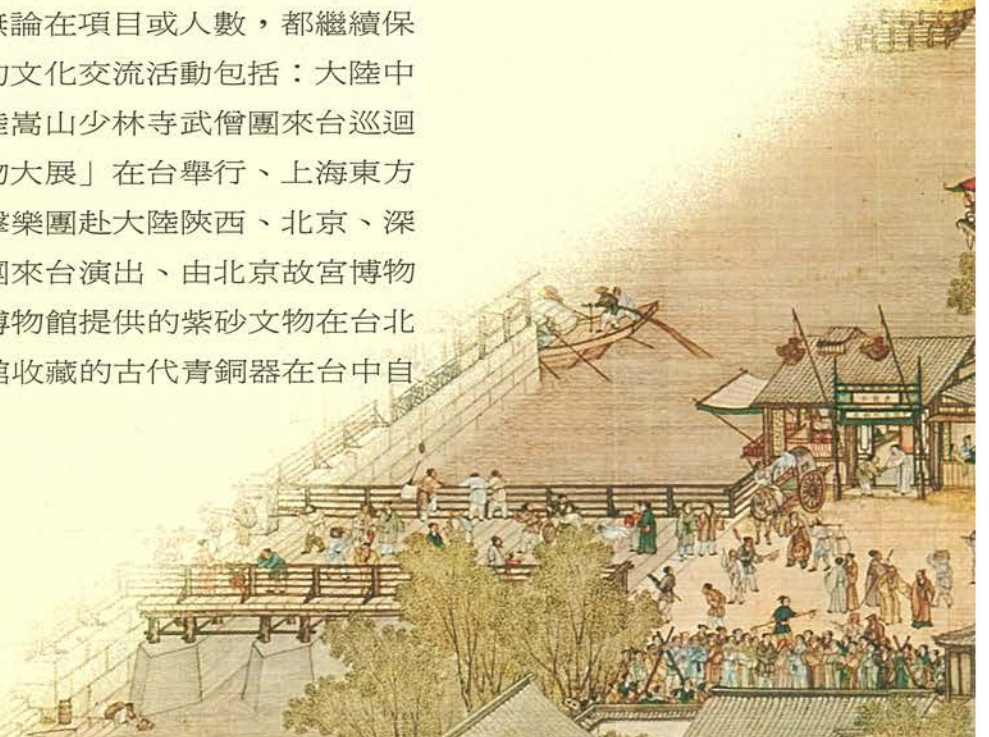 無論在項目或人數，都繼續保
的文化交流活動包括：大陸中
陸嵩山少林寺武僧團來台巡迴
物大展」在台舉行、上海東方
擊樂團赴大陸陝西、北京、深
團來台演出、由北京故宮博物
博物館提供的紫砂文物在台北
館收藏的古代青銅器在台中自